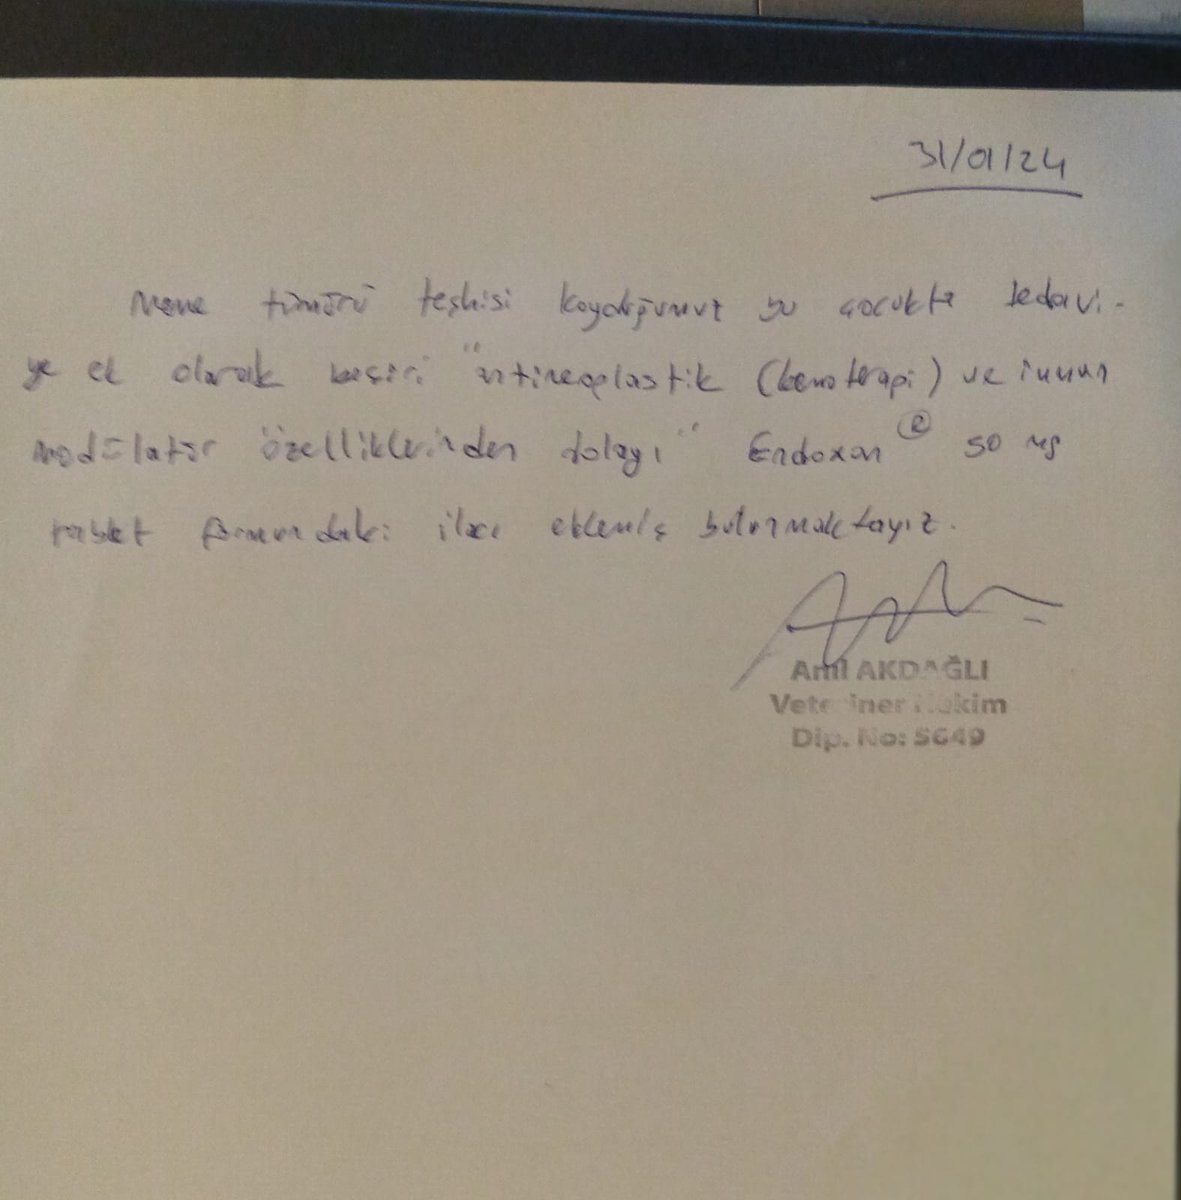 31/01/24
Meme tümörü teşhisi koyduğumuz bu çocukta tedavi-
ye ek olarak "antineoplastik (kemoterapi) ve immun
modülatör özelliklerinden dolayı" Endoxan ® 50 mg
tablet formundaki ilacı eklemiş bulunmaktayız.
Anıl AKDAĞLI
Veteriner Hekim
Dip. No: 5649